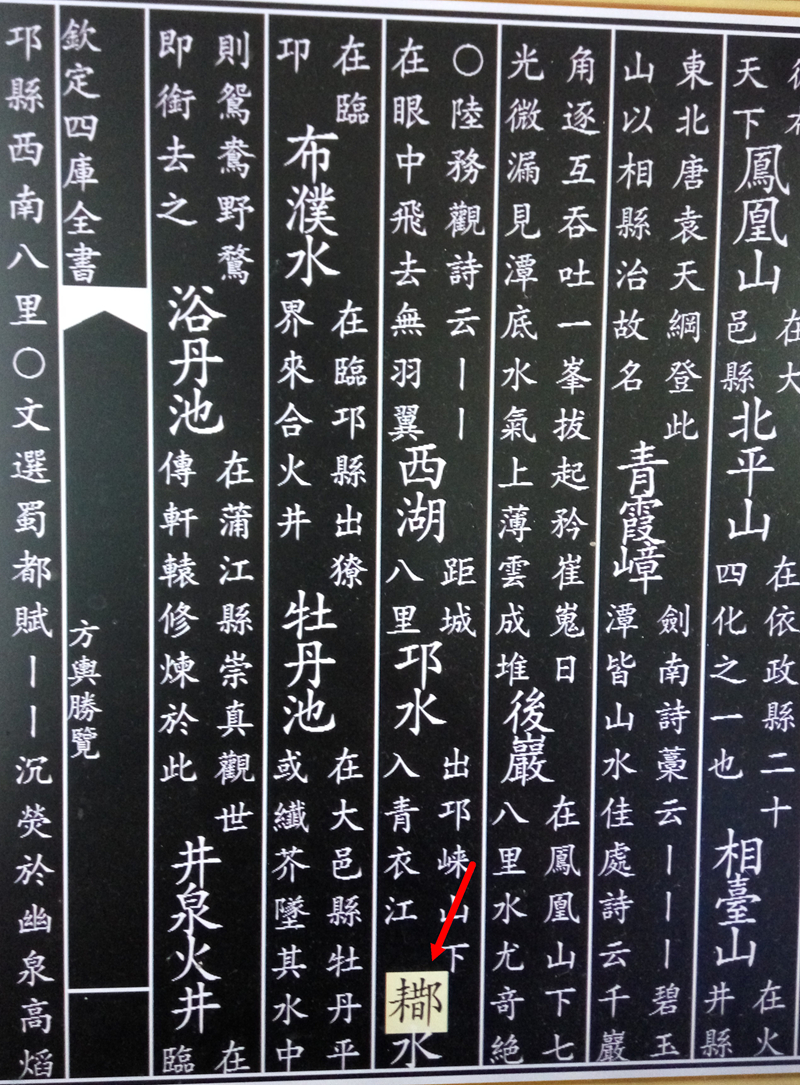 天下鳳凰山在大邑縣北平山在依政縣二十四化之一也相臺山在火井縣
東北唐袁天綱登此山以相縣治故名青霞嶂劍南詩藁云丨丨丨碧玉潭皆山水佳處詩云千巖
角逐互吞吐一峯拔起矜崔嵬日光微漏見潭底水氣上薄雲成堆後巖在鳳凰山下七八里水尤竒絶
○陸務觀詩云丨丨在眼中飛去無羽翼西湖距城八里邛水出邛崍山下入青衣江水
在臨邛布濮水在臨邛縣出獠界來合火井牡丹池在大邑縣牡丹平或纖芥墜其水中
則鴛鴦野鶩即銜去之浴丹池在蒲江縣崇真觀世傳軒轅修煉於此井泉火井在臨
欽定四庫全書 方輿勝覽
邛縣西南八里○文選蜀都賦丨丨沉熒於幽泉高熖